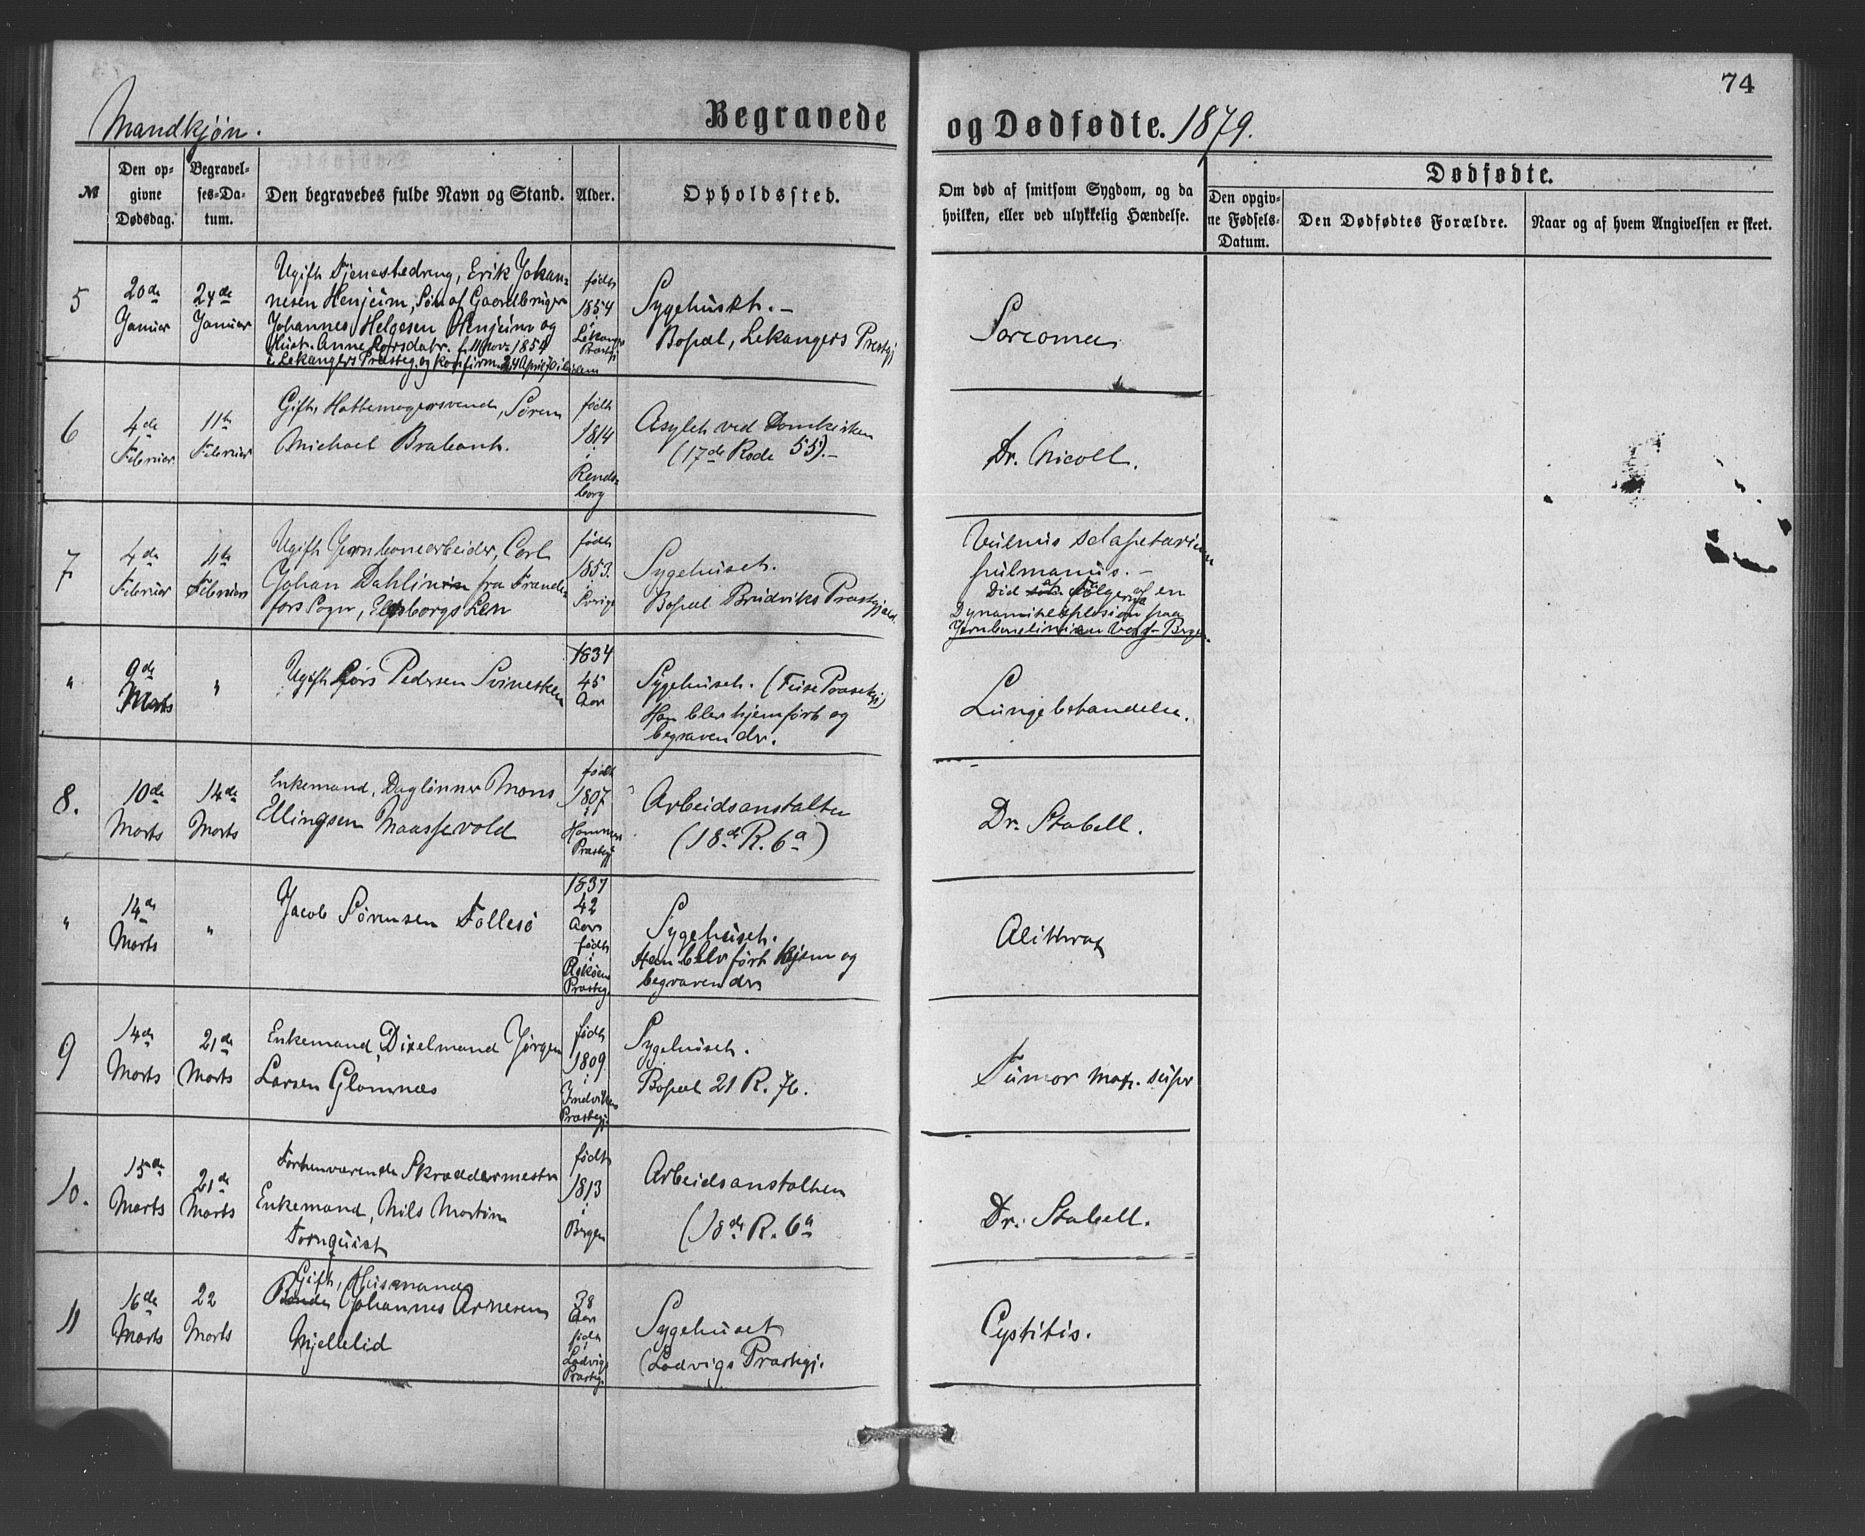 74
Mandkjøn.
Begravede og Dødfødte. 1879.
№
Den opgivne Dødsdag.
Begravelses-Datum.
Den begravedes fulde Navn og Stand.
Alder.
Opholdssted.
Om død af smitsom Sygdom, og da hvilken, eller ved ulykkelig Hændelse.
Dødfødte.
Den opgivne Fødsels-Datum.
Den Dødfødtes Forældre.
Naar og af hvem Angivelsen er skeet.
5
20de
Januar
24de
Januar
Ugift Tjenestedreng, Erik Johan-
nesen Henjum, Søn af Gaardbruger
Johannes Helgesen Henjum og
Hust. Anne Larsdatr. f. 11 Nov. 1854
i Lekangers Præsteg. og konfirm. 24 April
født
1854
i
Lekangers
Præstgj
Sygehuset. –
Bopæl, Lekangers Præstgj
Sarcoma
6
4de
Februar
11te
Februar
Gift, Hattemagersvend, Søren
Michael Brabant.
født
1814
i
Rends-
borg
Asylet ved Domkirken
(17de Rode 55). –
Dr. Nicoll.
7
4de
Februar
11te
Februar
Ugift Jernbanearbeider, Carl
Johan Dahlin fra Trande-
fors Sogn, Elfsborgs Len
født
1853.
i
Sverige
Sygehuset.
Bopæl Bruviks Præstgjæld
Vulnus
pulmanus. –
Død af Følgerne af en
Dynamitexplosion paa
Jernbanelinien Voss-Bergen.
"
9de
Marts
"
Ugift Lars Pedersen
1834
45
Aar
Sygehuset. (
Han blev hjemført og
begraven der.
Lungebetændelse.
8.
10de
Marts
14de
Marts
Enkemand, Daglønner Mons
Ellingsen Maassevold
født
1807
i
Hammers
Præstegj
Arbeidsanstalten
(18de R. 6a)
Dr. Stabell.
"
14de
Marts
"
Jacob Sørensen Follesø
1837
42
Aar
født
i
Askøens
Præsteg.
Sygehuset.
Han blev ført hjem og
begraven der
9
14de
Marts
21de
Marts
Enkemand, Dixelmand Jørgen
Larsen Glomnæs
født
1809
i
Indvikens
Præstegj.
Sygehuset.
Bopæl 21 R. 76.
Tumor max. super
10.
15de
Marts
21de
Marts
Forhenværende Skræddermester
Enkemand, Nils Martin
Tornquist
født
1813
i
Bergen
Arbeidsanstalten
(18de R. 6a
Dr. Stabell.
11
16de
Marts
22
Marts
Gift, Husmand
Bonde Johannes Arnesen
Mjellelid
38
Aar
født
i
Ladvigs
Præsteg.
Sygehuset
(Ladvigs Præstegj.
Cystitis.